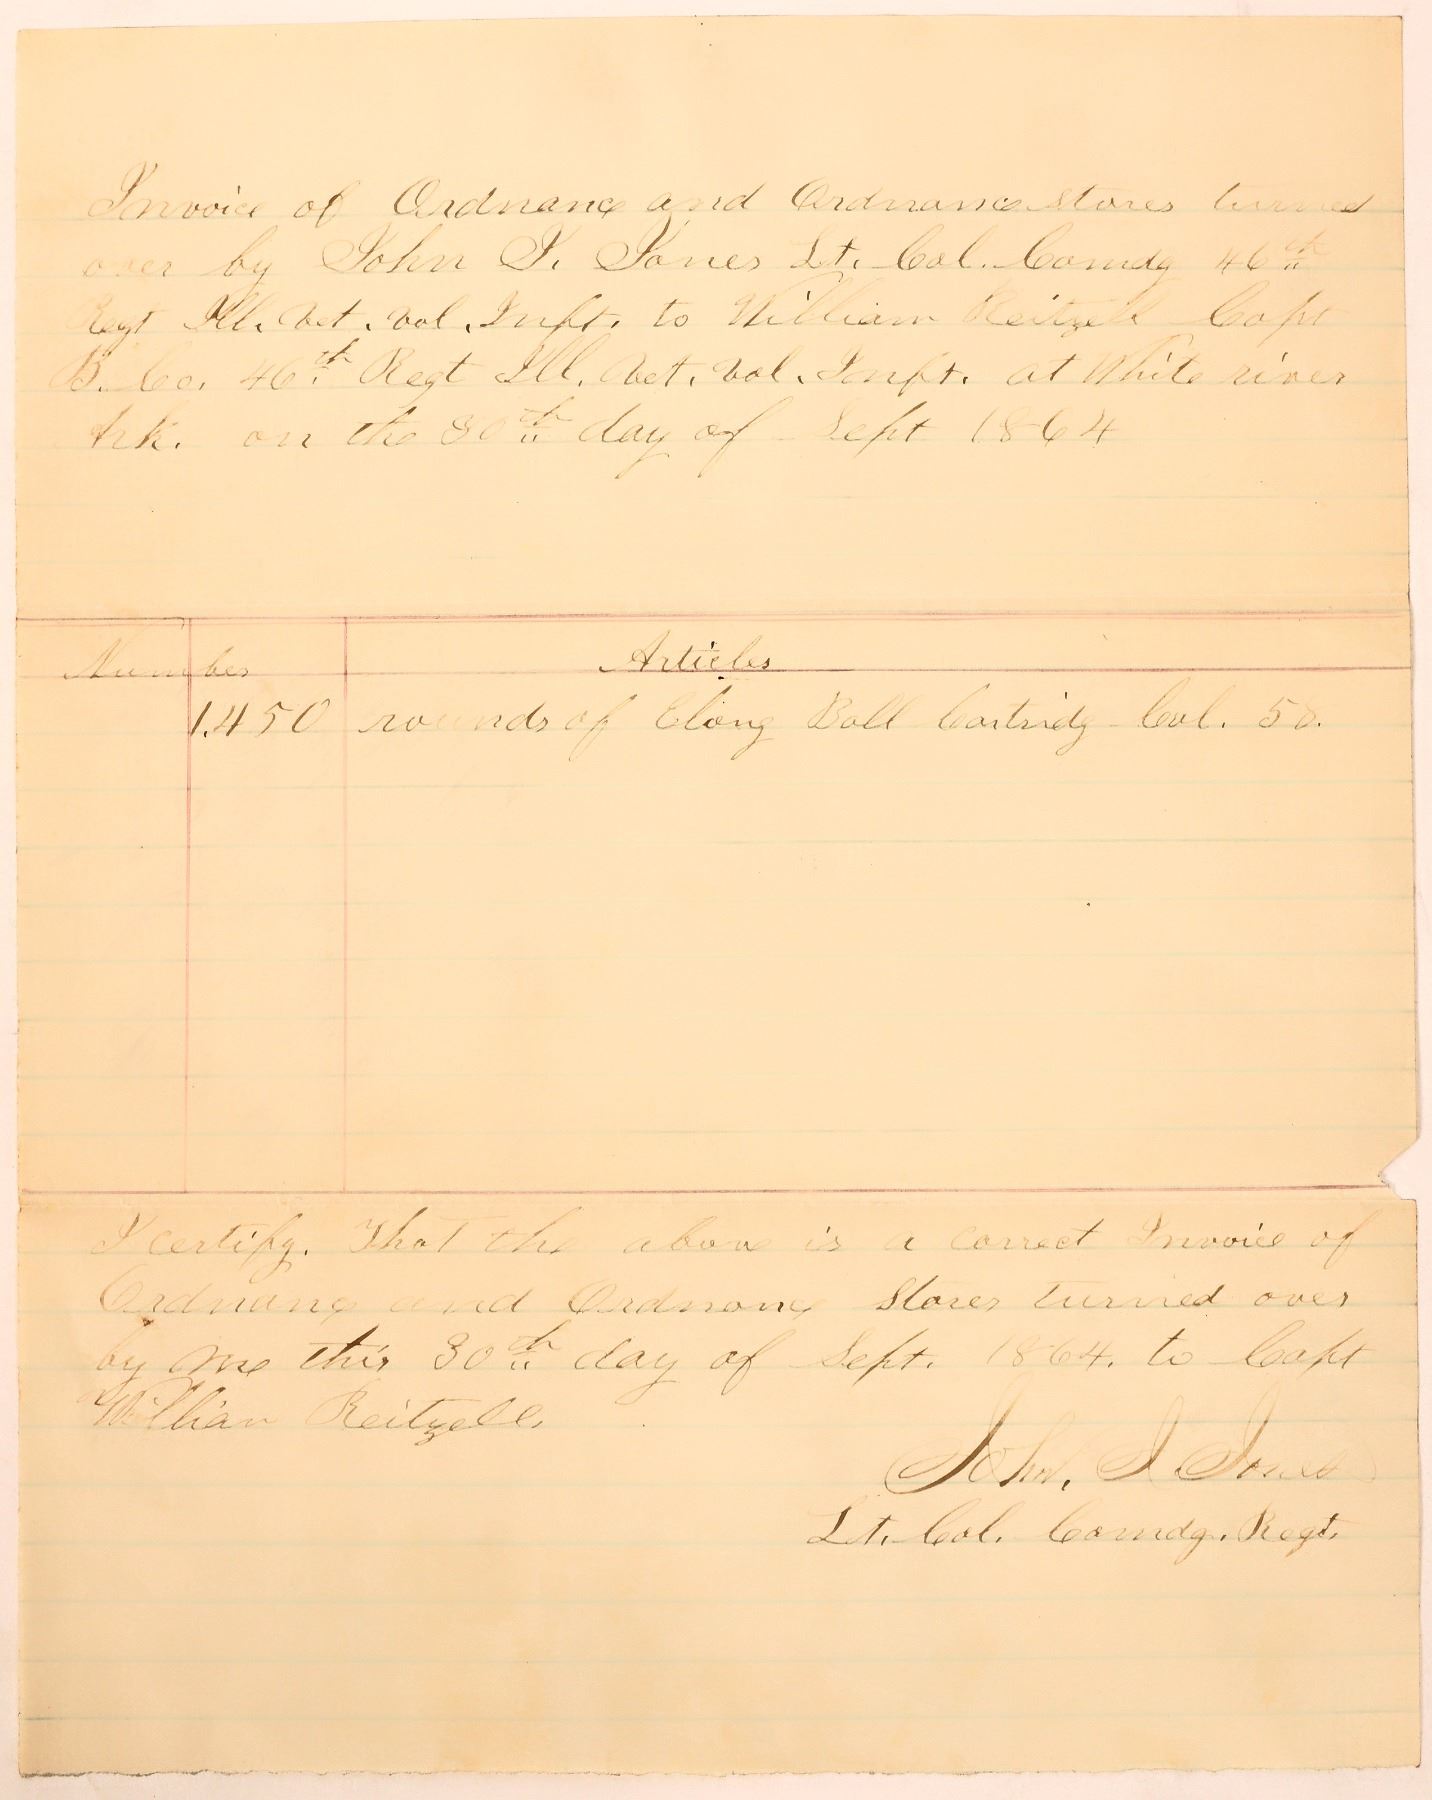 Invoice of Ordnance and Ordnance stores turned
over by John I. Jones Lt. Col. Comdg 46th
Regt Ill. Vet. Vol. Inft. to William Reitzell Capt
B. Co. 46th Regt Ill. Vet. Vol. Inft. at White river
Ark. on the 30th day of Sept 1864
Number Articles
1.450 rounds of Elong Ball Cartridg Cal. 58.
I certify. That the above is a correct Invoice of
Ordnance and Ordnance Stores turned over
by me this 30th day of Sept. 1864. to Capt
William Reitzell.
John. J. Jones
Lt. Col. Comdg. Regt.